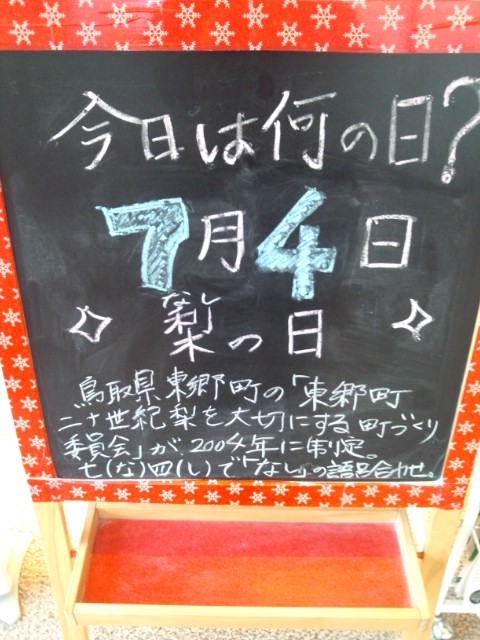 今日は何の日?
7月4日
なし
梨の日
鳥取県東郷町の「東郷町
二十世紀梨を大切にする町づくり
委員会」が、2004年に制定。
七(な)四(し)で「なし」の語呂合わせ。